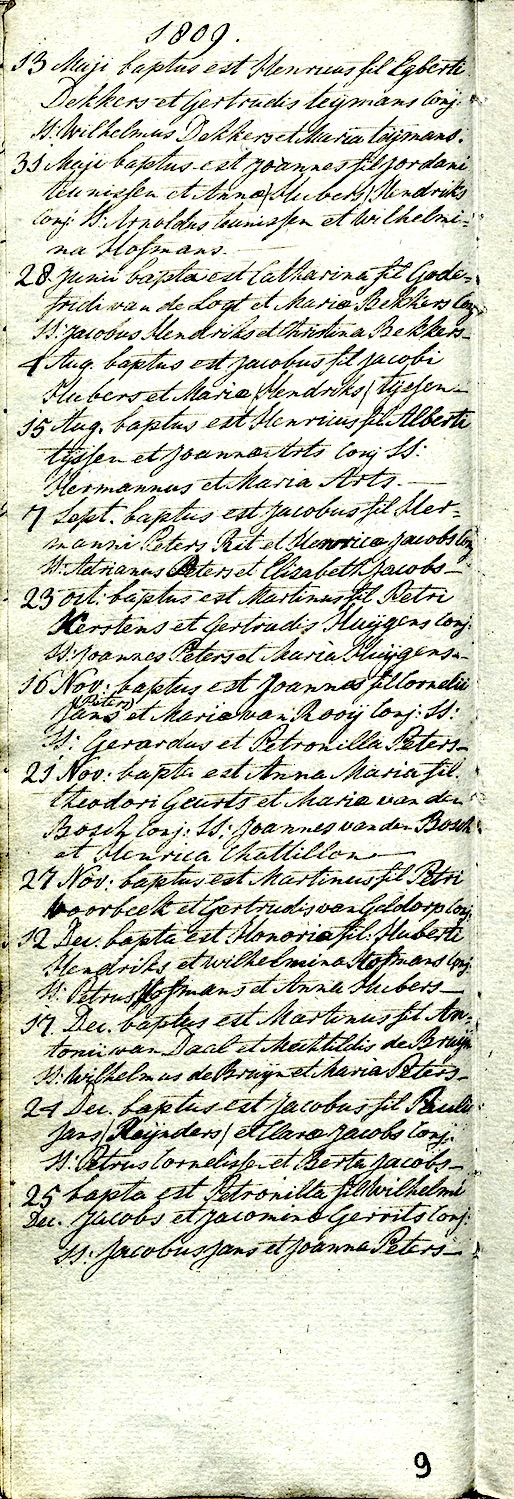 1809.
13 Maji baptus est Henricus fil Egberti
Dekkers et Gertrudis teijmans Conj.
SS: Wilhelmus Dekkers et Maria teijmans.
31 Maji baptus est Joannes fil Jordani
teunissen et Annæ (Hubers) Hendriks
Conj: SS: Arnoldus teunissen et Wilhelmi=
na Hofmans.
28. Junii bapta est Catharina fil Gode=
fridi van de Logt et Mariæ Bekkers Conj
SS: Jacobus Hendriks et Christina Bekkers
4 Aug. baptus est Jacobus fil Jacobi
Hubers et Mariæ (Hendriks) tijssen
15 Aug. baptus est Henricus fil Alberti
tijssen et Joannæ Arts Conj SS:
Hermannus et Maria Arts.
7 Sept. baptus est Jacobus fil Her=
manni Peters Rit et Henricæ Jacobs Conj
SS: Adrianus Peters et Elisabeth Jacobs
23 oct: baptus est Martinus fil Petri
Kerstens et Gertrudis Huijgens Conj.
SS: Joannes Peters et Maria Huijgens
16 Nov: baptus est Joannes fil Cornelii
(Peters)
Jans et Mariæ van Rooij Conj: SS:
SS: Gerardus et Petronilla Peters
21 Nov: bapta est Anna Maria fil.
theodori Geurts et Mariæ van den
Bosch Conj: SS: Joannes van den Bosch
et Henrica Chattillon
27 Nov: baptus est Martinus fil Petri
Voorbeek et Gertrudis van Geldorp Conj.
12 Dec. bapta est Honoria fil. Huberti
Hendriks et Wilhelmina Hofmans Conj
SS: Petrus Hofmans et Anna Hubers
17. Dec. baptus est Martinus fil An=
tonii van Daal et Mechtildis de Bruijn
SS: Wilhelmus de Bruijn et Maria Peters
24 Dec. baptus est Jacobus fil Pauli
Jans (Reijnders) et Claræ Jacobs Conj.
SS: Petrus Cornelissen et Berta Jacobs
25 bapta est Petronilla fil Wilhelmi
Dec. Jacobs et Jacominæ Gerrits Conj.
SS: Jacobus Jans et Joanna Peters
9